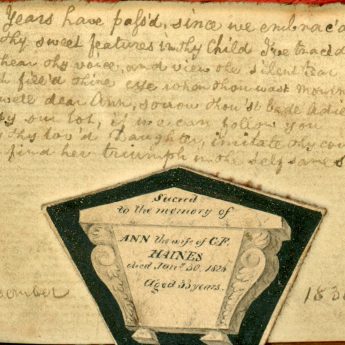 Years have pass'd, since we embrac'd
thy sweet features in thy Child I've trac'd
hear thy voice, and view the silent tear
fill'd thine eye when thou wast mourn
dear Ann, sorrow thou'st bade Adieu
our lot, if we can follow you
thy lov'd Daughter, imitate thy
find her triumph in the self same
Sacred
to the memory of
ANN the wife of C.F.
HAINES
died Jan.y 30, 182
Aged 33 years.
ember 183